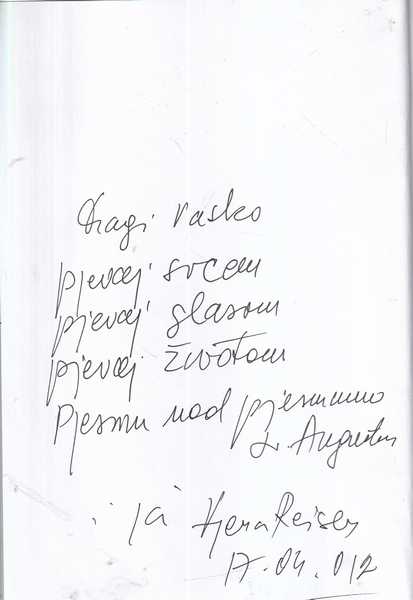 Dragi Vasko
pjevaj srcem
pjevaj glasom
pjevaj životom
Pjesmu nad pjesmama
Sv Augustin
i ja
17.04.012